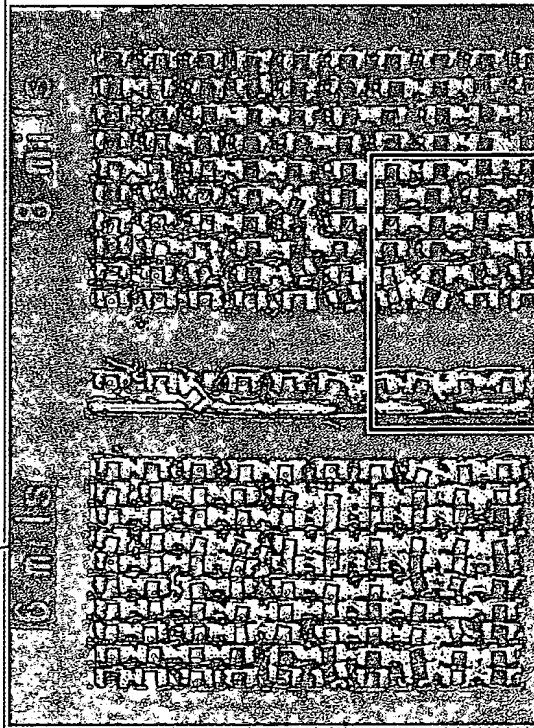 8 mils
6 mils